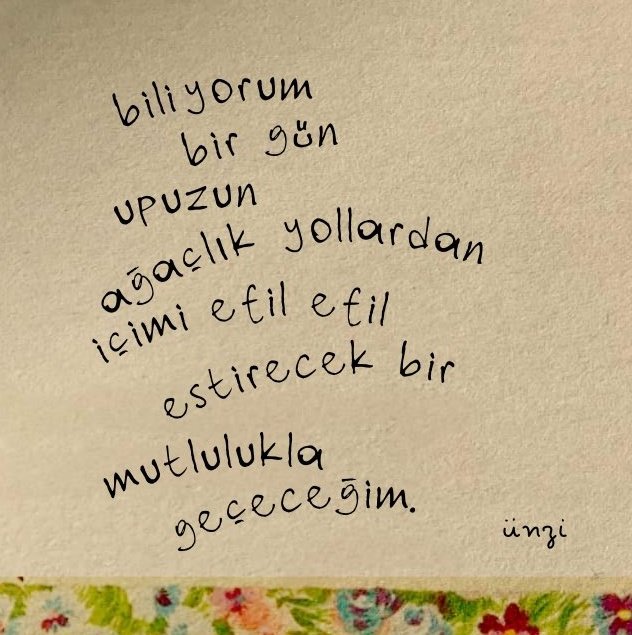 biliyorum
bir gün
upuzun
ağaçlık yollardan
içimi efil efil
estirecek bir
mutlulukla
geçeceğim.
ünzi